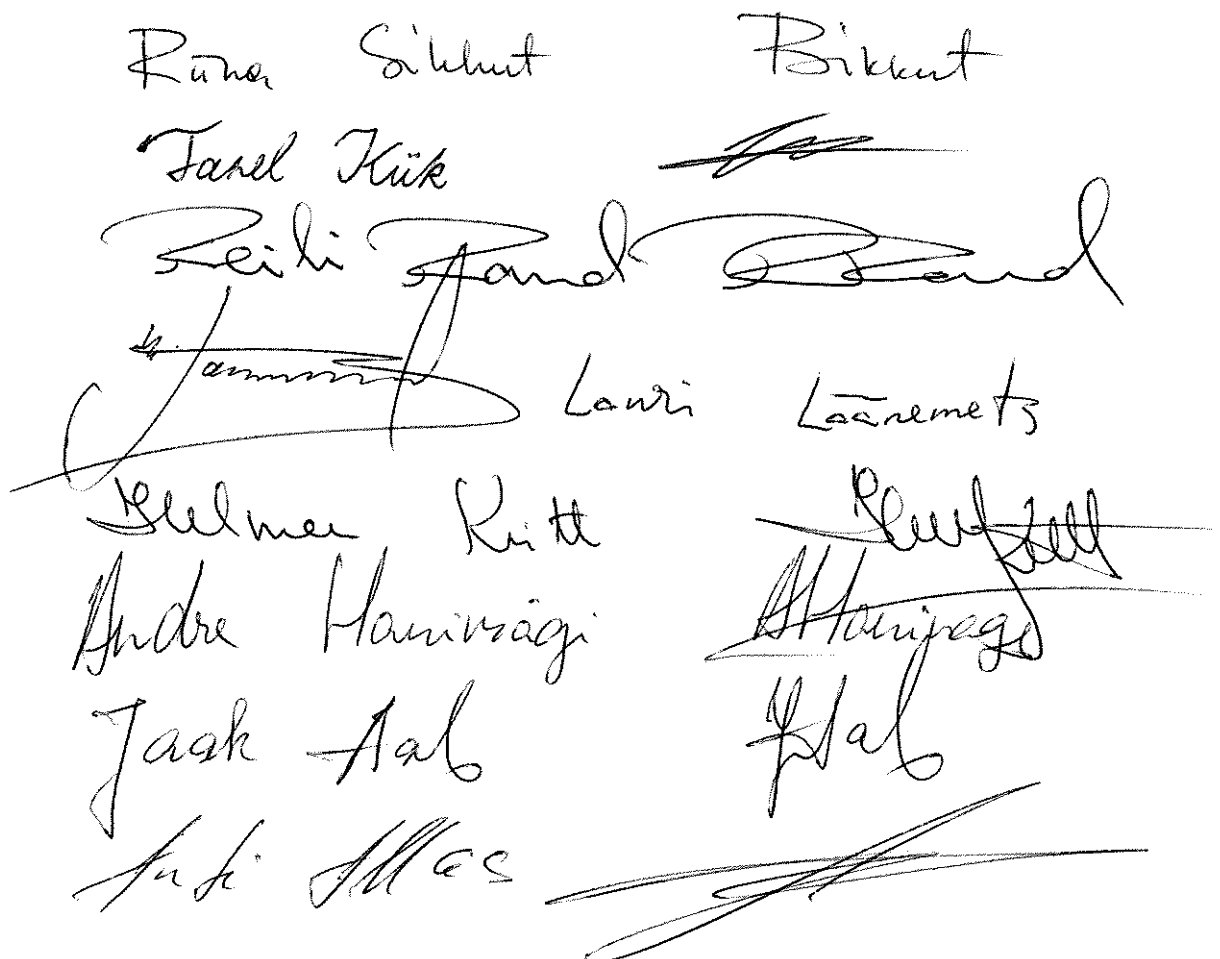 Riina Sikkut RSikkut
Tanel Kiik
Reili Rand RRand
Lauri Läänemets
Helmen Kütt
Andre Hanimägi AHanimägi
Jaak Aab JAab
Anti Allas